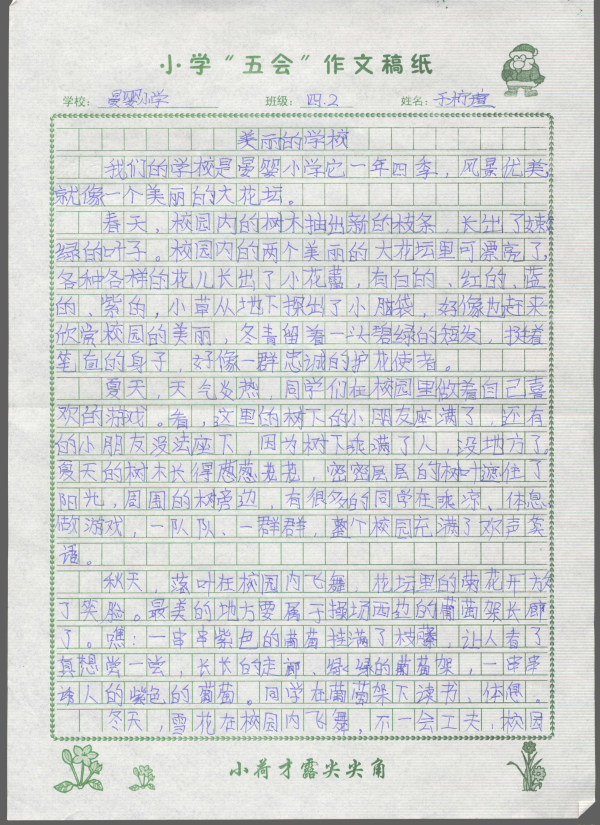 小学“五会”作文稿纸
学校：晏婴小学 班级：四.2 姓名：于
美丽的学校
我们的学校是晏婴小学它一年四季，风景优美，
就像一个美丽的大花坛。
春天，校园内的树木抽出新的枝条，长出了嫩
绿的叶子。校园内的两个美丽的大花坛里可漂亮了，
各种各样的花儿长出了小花蕾，有白的、红的、蓝
的、紫的，小草从地下探出了小脑袋，好像也赶来
欣赏校园的美丽，冬青留着一头碧绿的短发，挺着
笔直的身子，好像一群忠诚的护花使者。
夏天，天气炎热，同学们在校园里做着自己喜
欢的游戏。看，这里的树下的小朋友座满了，还有
的小朋友没法座下，因为树下乘满了人，没地方了，
夏天的树木长得葱葱茏茏，密密层层的树叶遮住了
阳光，周围的树旁边，有很多的同学在乘凉、体息
做游戏，一队队、一群群，整个校园充满了欢声笑
语。
秋天，落叶在校园内飞舞 花坛里的菊花开放
了笑脸。最美的地方要属于操场西边的葡萄架长廊
了。瞧：一串串紫色的葡萄挂满了枝，让人看了
真想尝一尝，长长的走廊、绿绿的葡萄架，一串串
诱人的紫色的葡萄。同学在葡萄架下读书、体息。
冬天，雪花在校园内飞舞，不一会工夫，校园
小荷才露尖尖角